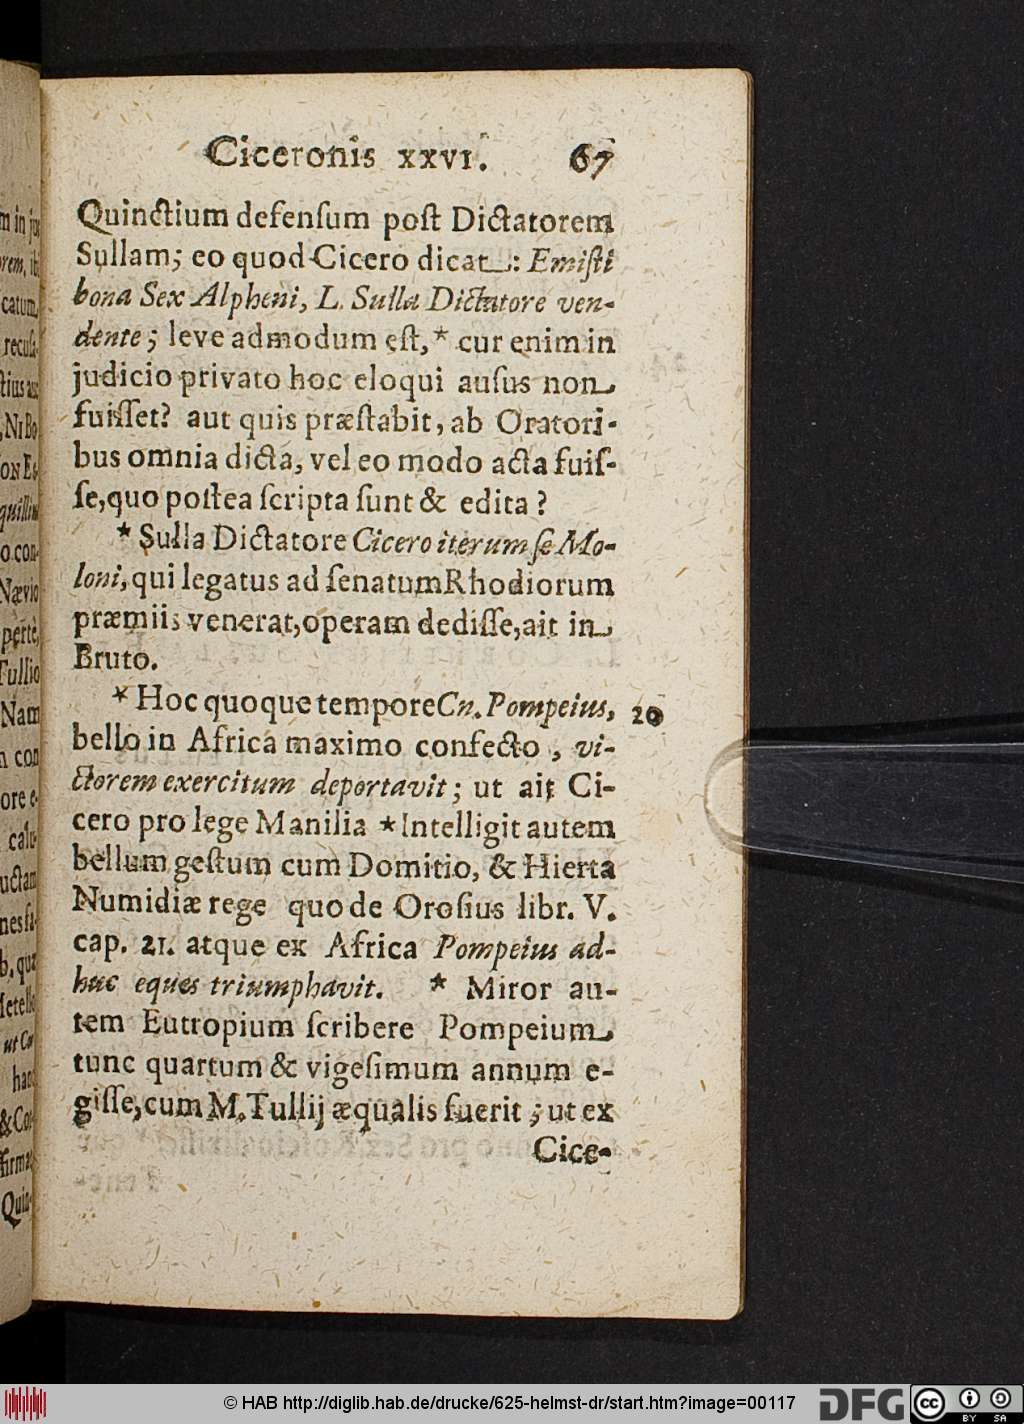 Ciceronis XXVI. 67
Quinctium defenſum poſt Dictatorem
Sullam; eo quod Cicero dicat: Emiſti
bona Sex Alpheni, L. Sulla Dictatore ven-
dente; leve admodum eſt, * cur enim in
judicio privato hoc eloqui auſus non
fuiſſet? aut quis præſtabit, ab Oratori-
bus omnia dicta, vel eo modo acta fuiſ-
ſe, quo poſtea ſcripta ſunt & edita?
* Sulla Dictatore Cicero iterum ſe Mo-
loni, qui legatus ad ſenatum Rhodiorum
præmiis venerat, operam dediſſe, ait in
Bruto.
* Hoc quoque tempore Cn. Pompeius, 20
bello in Africa maximo confecto, vi-
ctorem exercitum deportavit; ut ait Ci-
cero pro lege Manilia * Intelligit autem
bellum geſtum cum Domitio, & Hierta
Numidiæ rege quo de Oroſius libr. V.
cap. 21. atque ex Africa Pompeius ad-
huc eques triumphavit. * Miror au-
tem Eutropium ſcribere Pompeium
tunc quartum & vigeſimum annum e-
giſſe, cum M. Tullij æqualis fuerit; ut ex
Cice-
© HAB http://diglib.hab.de/drucke/625-helmst-dr/start.htm?image=00117
DFG
CC BY SA